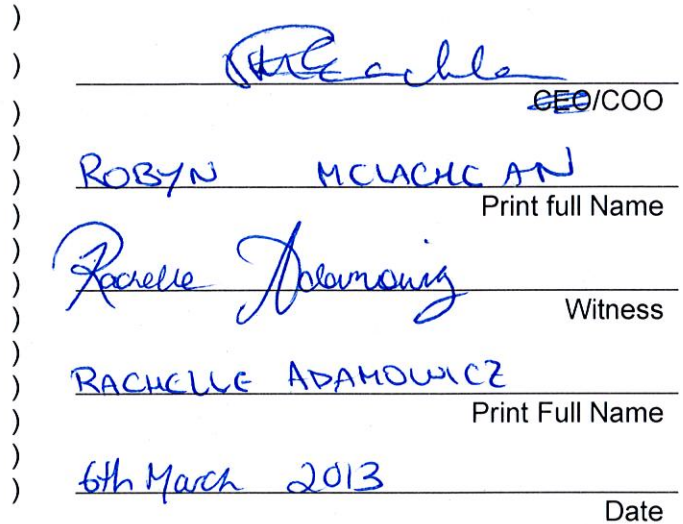 )
)
CEO/COO
)
)
ROBYN MCLACHLAN
)
Print full Name
)
)
Rachelle Adamowicz
)
Witness
)
)
RACHELLE ADAMOWICZ
)
Print Full Name
)
)
6th March 2013
)
Date